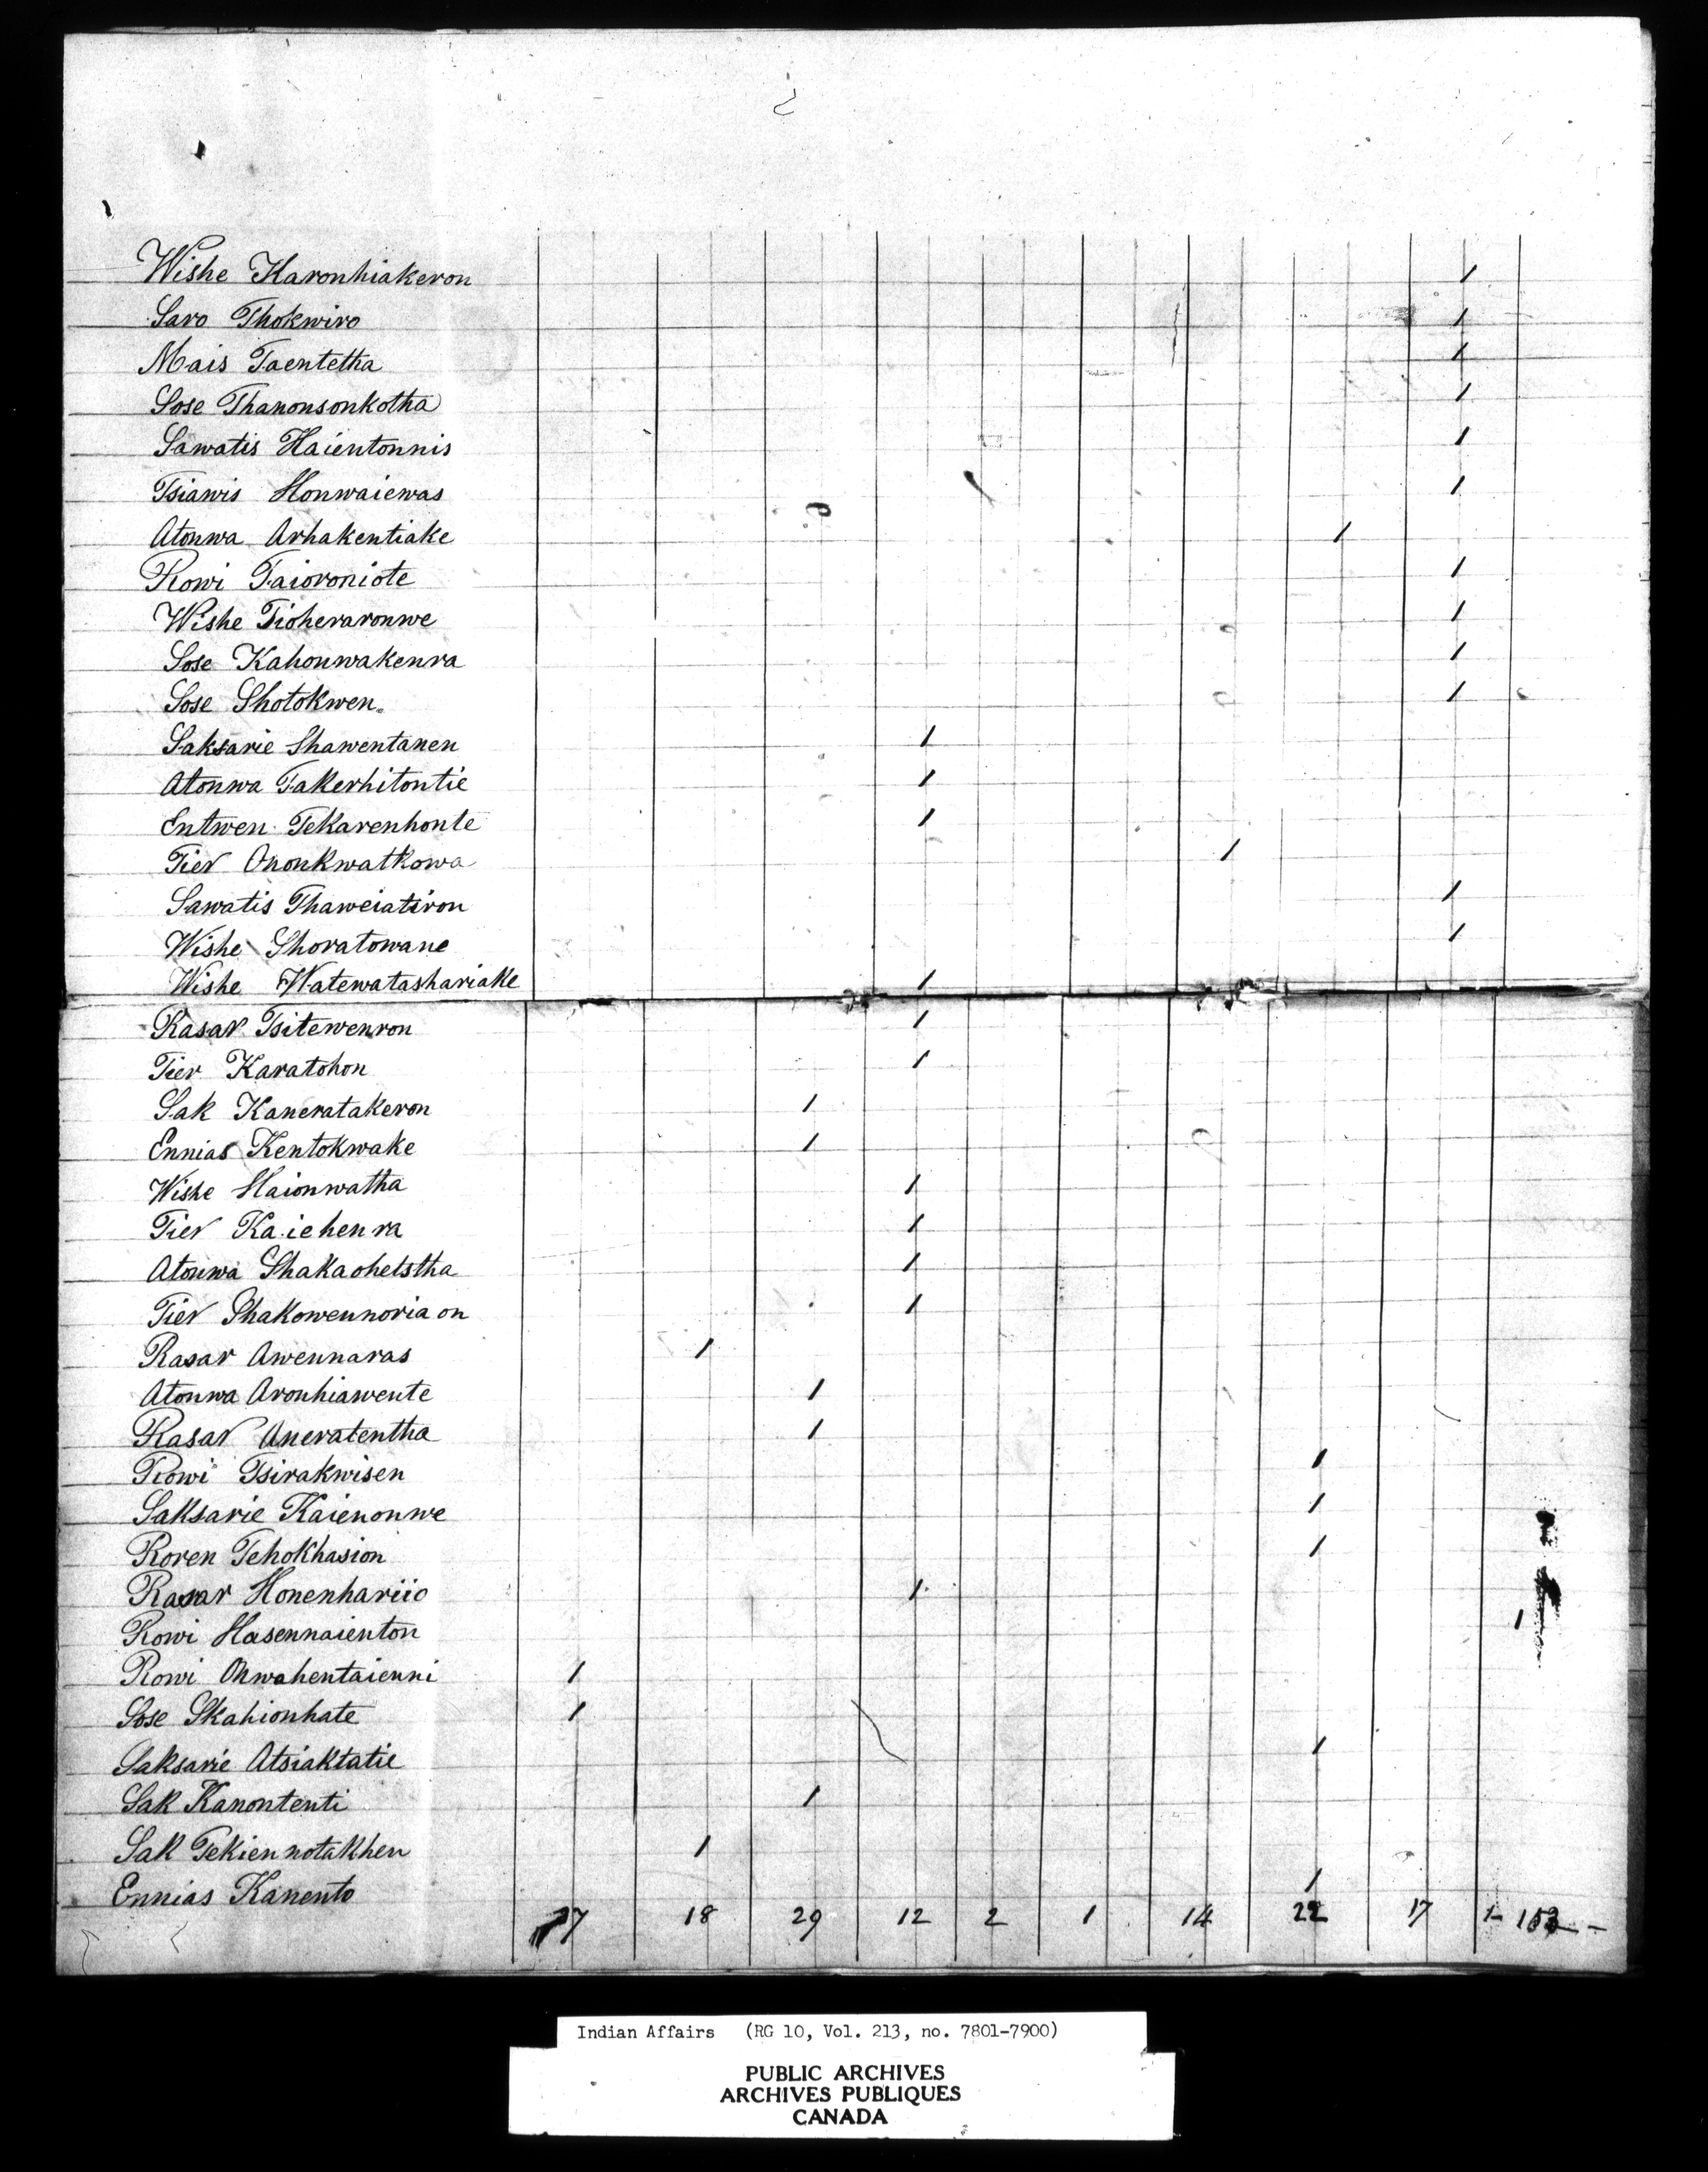 Wishe Karonhiakeron 1
Saro Thokwiro 1
Mais Taentetha 1
Sose Thanonsonkotha 1
Sawatis Haientonnis 1
Tsiawis Honwaiewas 1
Atonwa Arhakentiake 1
Rowi Taioroniote 1
Wishe Tioheraronwe 1
Sose Kahonwakenra 1
Sose Shotokwen 1
Saksarie Shawentanen 1
Atonwa Takerhitontie 1
Entwen Tekarenhonte 1
Tier Ononkwatkowa 1
Sawatis Thaweiatiron 1
Wishe Shoratowane 1
Wishe Watewatashariake 1
Rasar Tsitewenron 1
Tier Karatohon 1
Sak Kaneratakeron 1
Ennias Kentokwake 1
Wishe Haionwatha 1
Tier Kaiehenra 1
Atonwa Shakaohetstha 1
Tier Shakowennoriaon 1
Rasar Awennaras 1
Atonwa Aronhiawente 1
Rasar Aneratentha 1
Rowi Tsirakwisen 1
Saksarie Kaienonwe 1
Roren Tehokhasion 1
Rasar Honenhariio 1
Rowi Hasennaienton 1
Rowi Ohwahentaienni 1
Sose Skahionhate 1
Saksarie Atsiaktatie 1
Sak Kanontenti 1
Sak Tekiennotakhen 1
Ennias Kanento 1
18 29 12 2 1 14 22 17 1-
Indian Affairs (RG 10, Vol. 213, no. 7801-7900)
PUBLIC ARCHIVES
ARCHIVES PUBLIQUES
CANADA